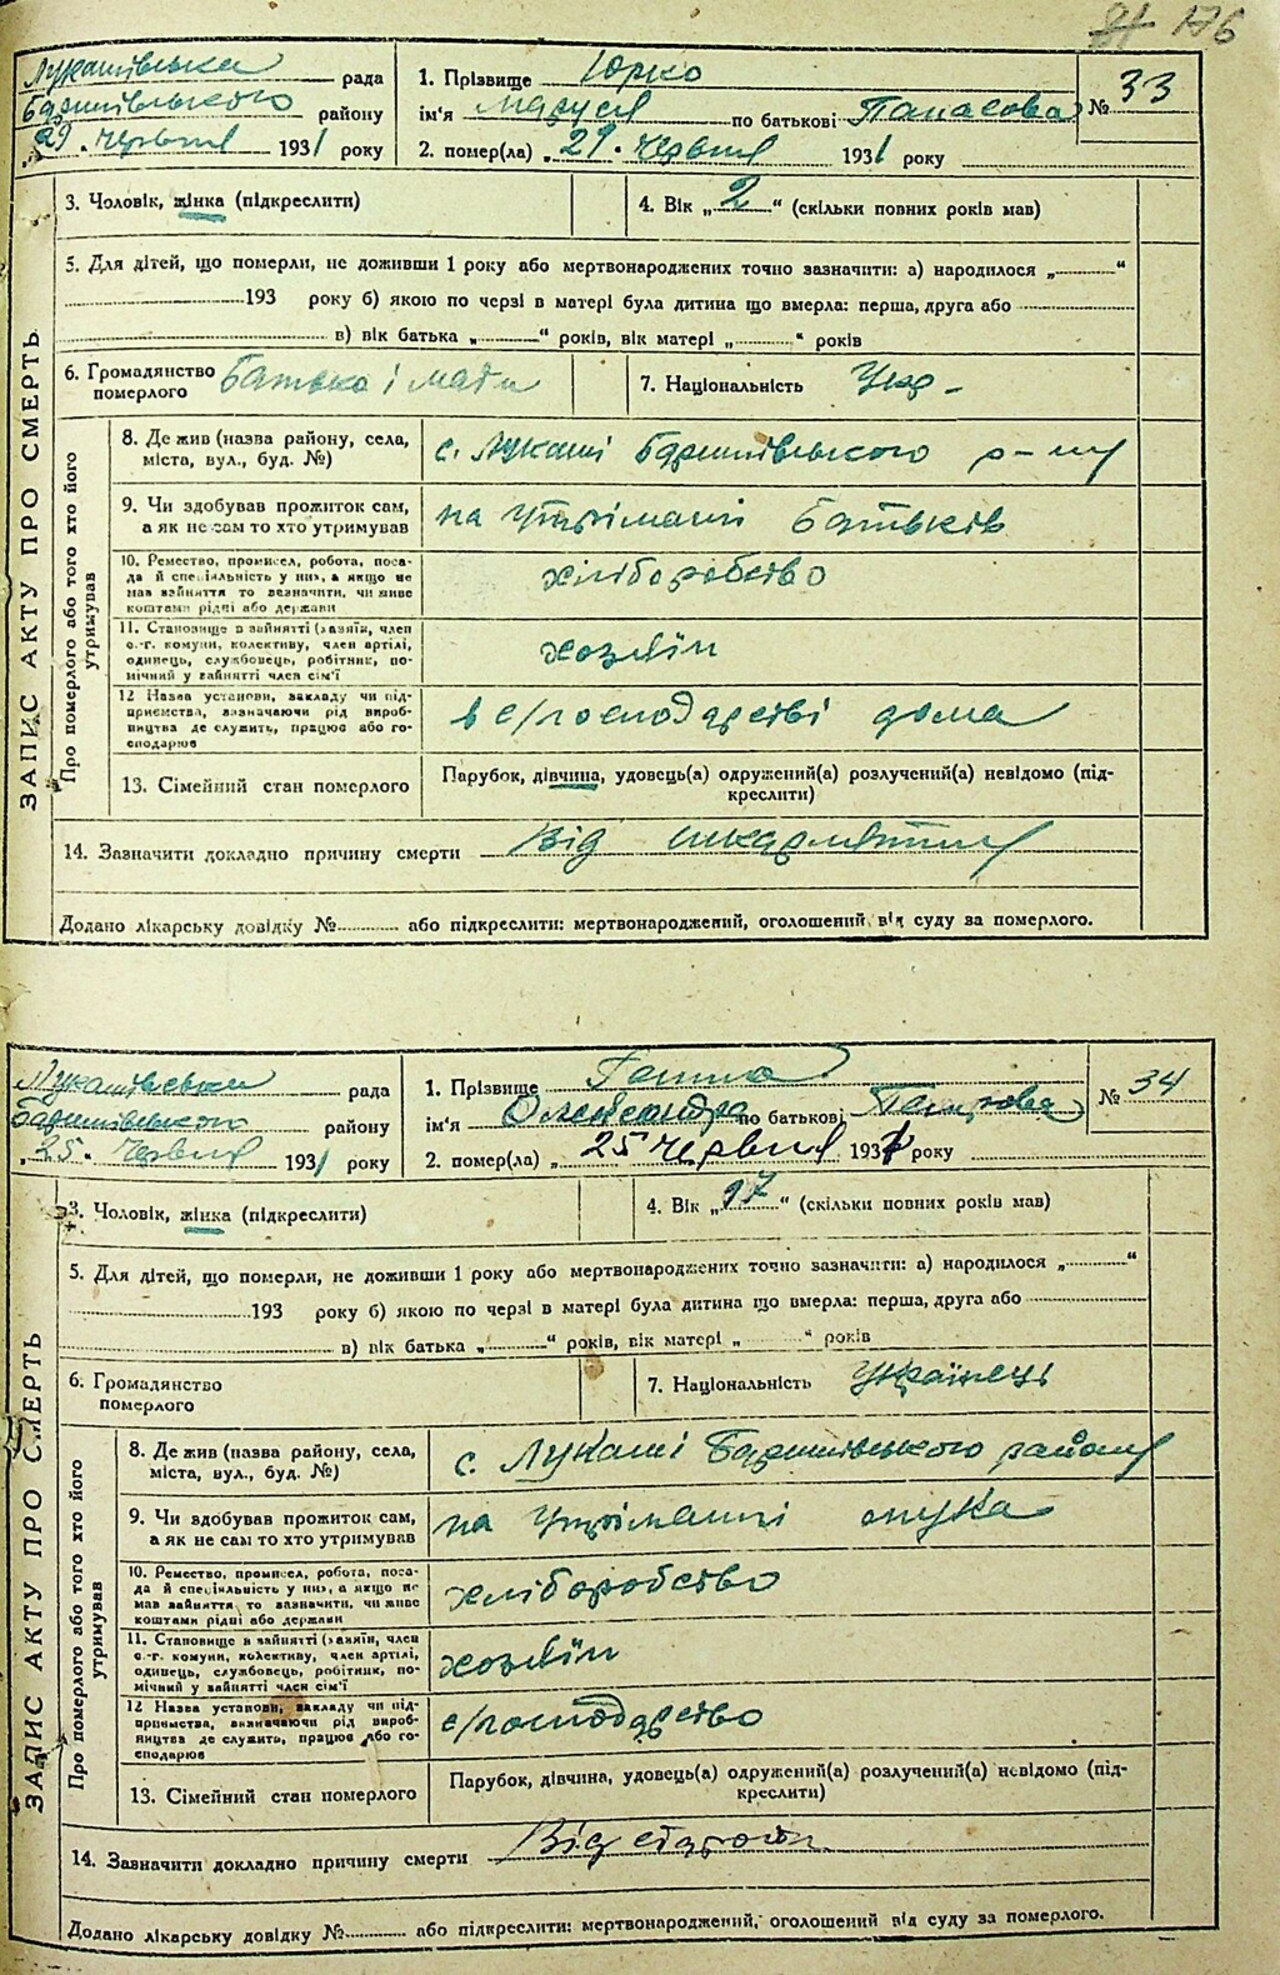 176
Лукашівська рада
Баришівського району
„29. Червня 1931 року
1. Прізвище Юрко
ім'я Маруся по батькові Панасова
2. помер(ла) „29. Червня 1931 року
№ 33
ЗАПИС АКТУ ПРО СМЕРТЬ
3. Чоловік, жінка (підкреслити)
4. Вік „2“ (скільки повних років мав)
5. Для дітей, що померли, не доживши 1 року або мертвонароджених точно зазначити: а) народилося „ “
193 року б) якою по черзі в матері була дитина що вмерла: перша, друга або
в) вік батька „ “ років, вік матері „ “ років
6. Громадянство померлого Батько і мати
7. Національність Укр-
Про померлого або того хто його утримував
8. Де жив (назва району, села,
міста, вул., буд. №)
с. Лукаші Баришівського р-ну
9. Чи здобував прожиток сам,
а як не сам то хто утримував
на утріманні Батьків
10. Ремество, промисел, робота, поса-
да й спеціяльність у них, а якщо не
мав зайняття то зазначити, чи живе
коштами рідні або держави
хліборобство
11. Становище в зайнятті (хазяїн, член
с.-г. комуни, колективу, член артілі,
одинець, службовець, робітник, по-
мічний у зайнятті член сім'ї
хозяїн
12 Назва установи, закладу чи під-
приємства, зазначаючи рід вироб-
ництва де служить, працює або го-
сподарює
в с/господарстві дома
13. Сімейний стан померлого
Парубок, дівчина, удовець(а) одружений(а) розлучений(а) невідомо (під-
креслити)
14. Зазначити докладно причину смерти Від шкарлятини
Додано лікарську довідку № або підкреслити: мертвонароджений, оголошений від суду за померлого.
Лукашівська рада
Баришівського району
„25. Червня 1931 року
1. Прізвище Ганна
ім'я Олександра по батькові Петрова
2. помер(ла) „25 Червня 1931 року
№ 34
ЗАПИС АКТУ ПРО СМЕРТЬ
3. Чоловік, жінка (підкреслити)
4. Вік „97“ (скільки повних років мав)
5. Для дітей, що померли, не доживши 1 року або мертвонароджених точно зазначити: а) народилося „ “
193 року б) якою по черзі в матері була дитина що вмерла: перша, друга або
в) вік батька „ “ років, вік матері „ “ років
6. Громадянство
померлого
7. Національність Українець
Про померлого або того хто його утримував
8. Де жив (назва району, села,
міста, вул., буд. №)
с. Лукаші Баришівського району
9. Чи здобував прожиток сам,
а як не сам то хто утримував
на утріманні онука
10. Ремество, промисел, робота, поса-
да й спеціяльність у них, а якщо не
мав зайняття то зазначити, чи живе
коштами рідні або держави
хліборобство
11. Становище в зайнятті (хазяїн, член
с.-г. комуни, колективу, член артілі,
одинець, службовець, робітник, по-
мічний у зайнятті член сім'ї
хозяїн
12 Назва установи, закладу чи під-
приємства, визначаючи рід вироб-
ництва де служить, працює або го-
сподарює
с/господарство
13. Сімейний стан померлого
Парубок, дівчина, удовець(а) одружений(а) розлучений(а) невідомо (під-
креслити)
14. Зазначити докладно причину смерти Від старости
Додано лікарську довідку № або підкреслити: мертвонароджений, оголошений від суду за померлого.